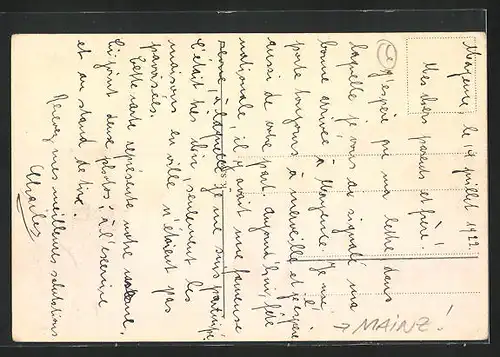 Mayence, le 14 juillet 1922
Mes chers parents et frère!
J'espère que ma lettre dans
laquelle je vous ai signalé ma
bonne arrivée à Mayence. Je me
porte toujours à merveille et j'espère
aussi de votre part. Aujourd'hui, fête
nationale, il y avait une fameuse
à laquelle je me suis participé
C'était très bien, seulement les
maisons en ville n'étaient pas
pavoisées.
Cette carte représente notre
Ci-joint deux photos, à l'escrime
et au stand de tire.
Recevez mes meilleures salutations
Charles
→ MAINZ!